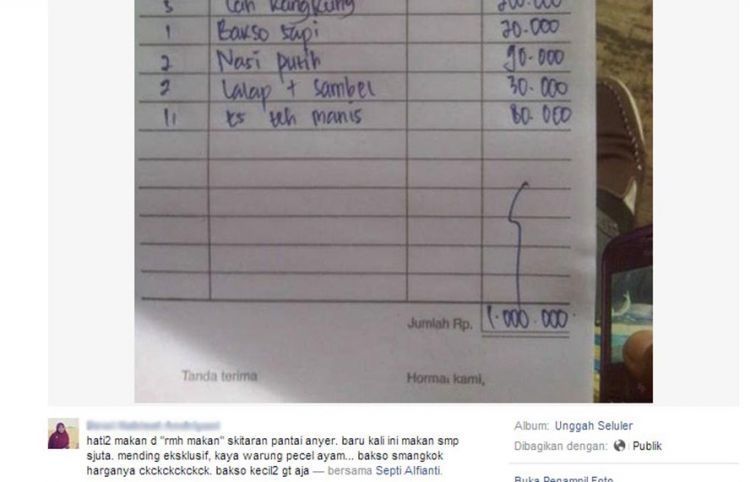 3 Cah Kangkung 200.000
1 Bakso Sapi 20.000
2 Nasi putih 90.000
2 Lalap + Sambel 30.000
11 Es teh manis 80.000
Jumlah Rp. 1.000.000
Tanda terima Hormat kami,
hati2 makan d "rmh makan" skitaran pantai anyer. baru kali ini makan smp
sjuta. mending eksklusif, kaya warung pecel ayam... bakso smangkok
harganya ckckckckckck. bakso kecil2 gt aja — bersama Septi Alfianti.
Album: Unggah Seluler
Dibagikan dengan: Publik
Buka Penampil Foto